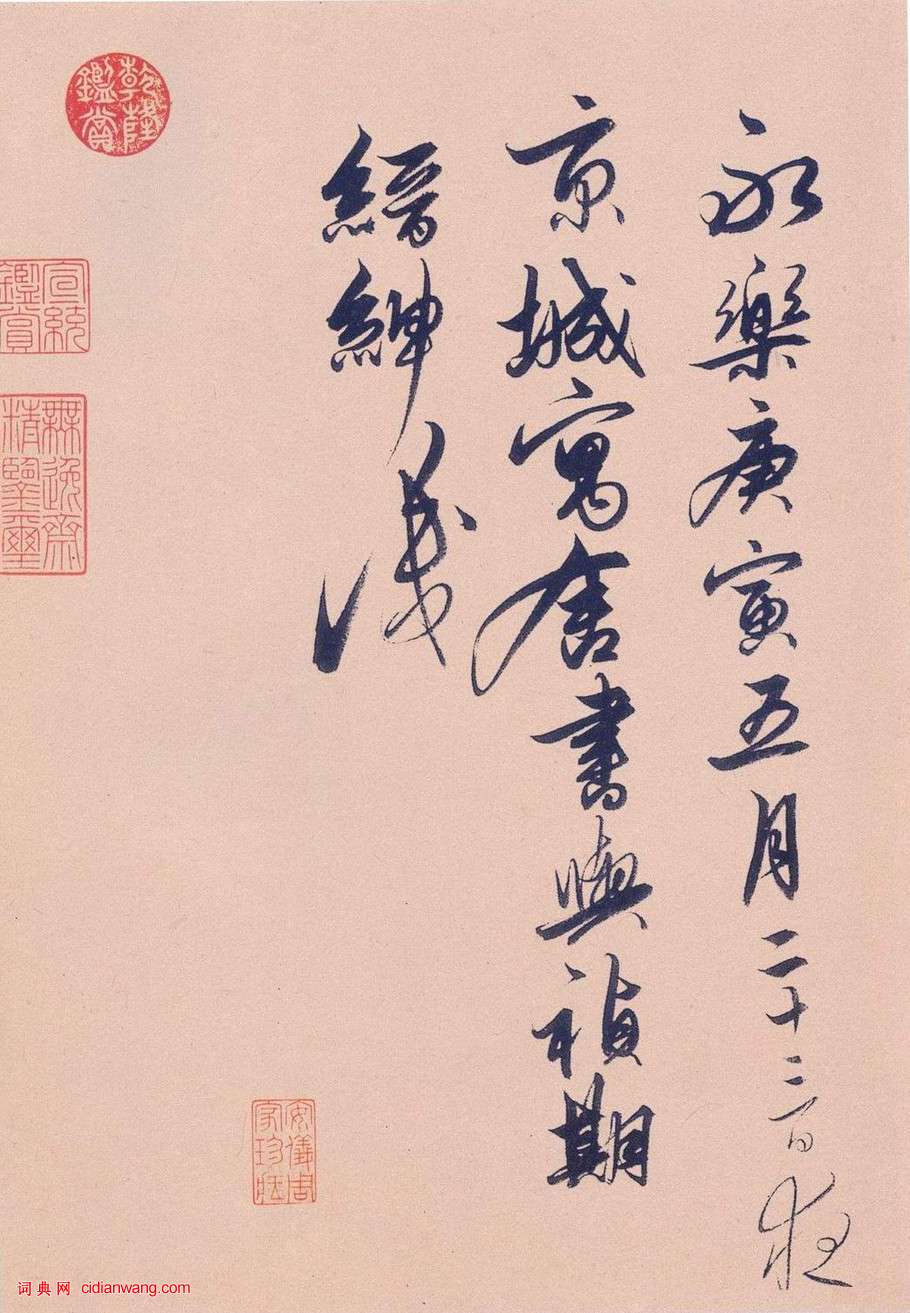 永樂庚寅五月二十三日在
京城寓舍書與禎期
縉紳識
乾隆鑑賞
宣統鑑賞
無逸齋精鑒璽
安儀周家珍藏
词典网 cidianwang.com